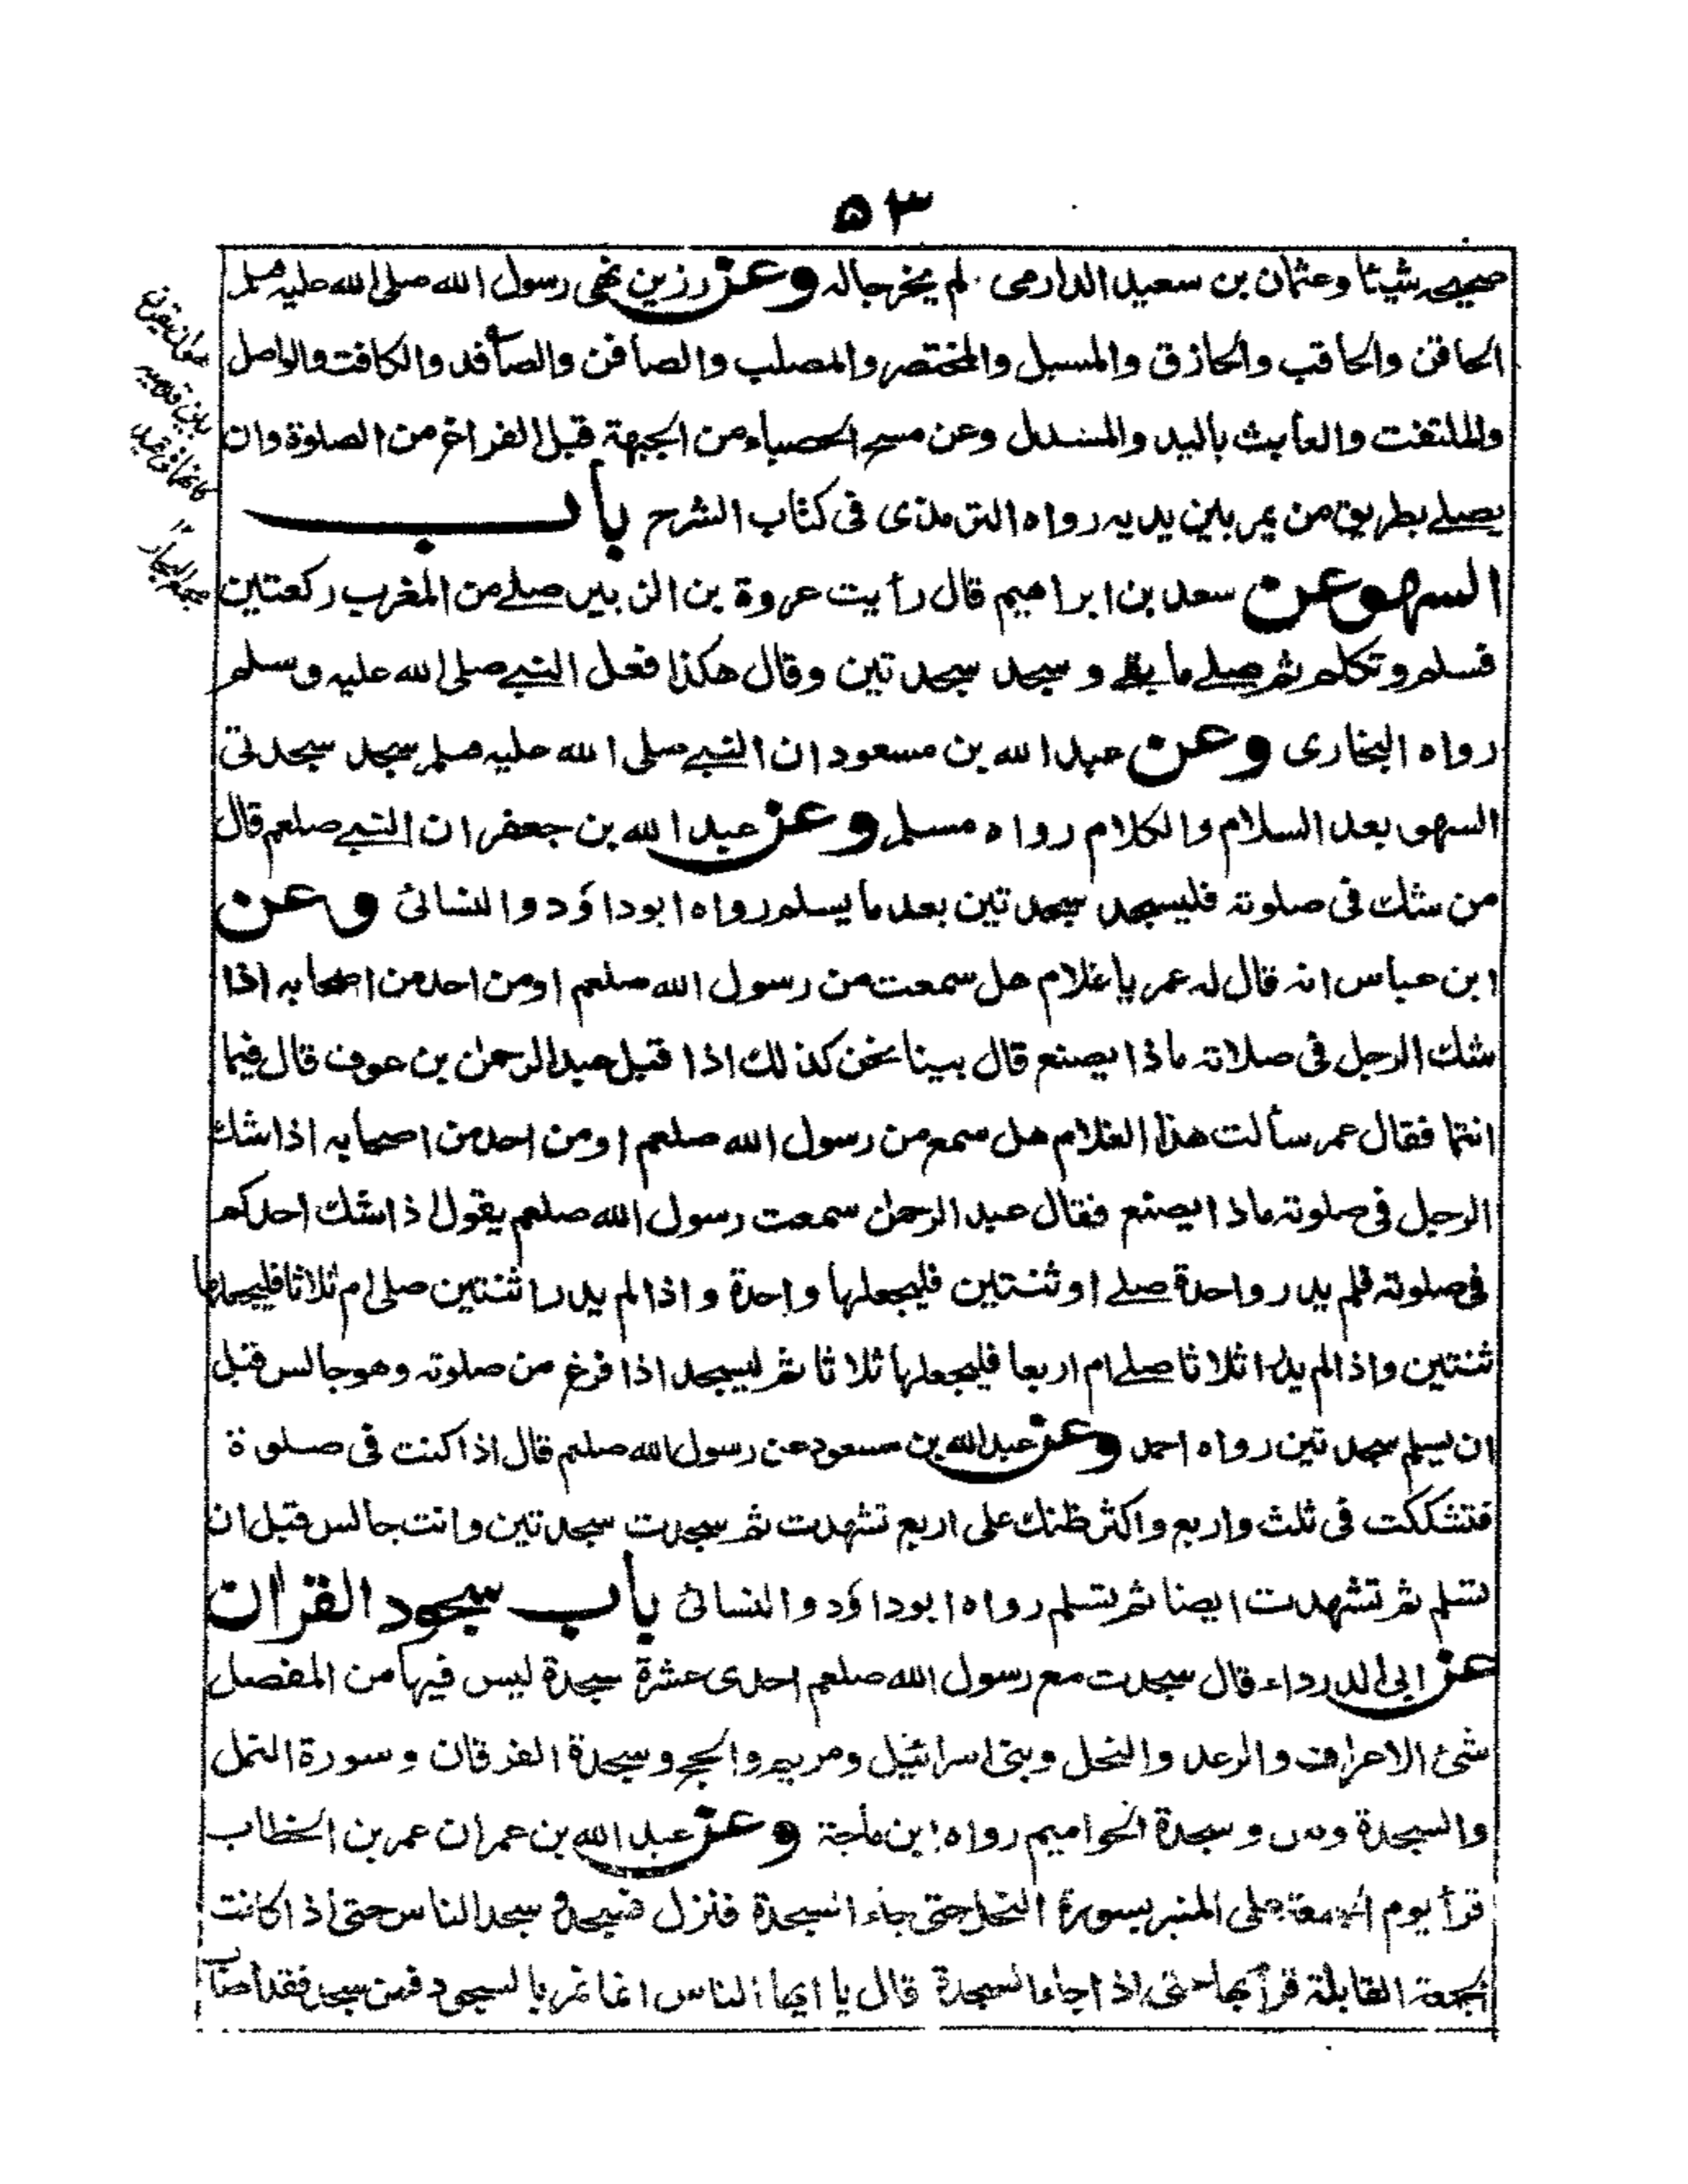 ٥٣
صحيحہ شيئا وعثمان بن سعيد الدارمى لم يخرجا لہ وعن رزين نهى رسول الله صلى الله عليہ صلم
الحاقن والحاقب والحازق والمسبل والمختصر والمصلب والصافن والصافد والكافت والواصل
والملتفت والعابث باليد والمسدل وعن مسح الحصباء من الجبهة قبل الفراغ من الصلوة وان
يصلے بطريق من يمر بين يديہ رواه الترمذى فى كتاب الشرح باب
السهو عن سعد بن ابراهيم قال رأيت عروة بن الزبير صلے من المغرب ركعتين
فسلم وتكلم ثم صلے ما بقے و سجد سجدتين وقال هكذا فعل النبے صلى الله عليہ وسلم
رواه البخارى وعن عبد الله بن مسعود ان النبے صلى الله عليہ صلم سجد سجدتى
السهو بعد السلام والكلام رواه مسلم وعن عبد الله بن جعفر ان النبے صلعم قال
من شك فى صلوتہ فليسجد سجدتين بعد ما يسلم رواه ابوداؤد والنسائى وعن
ابن عباس انہ قال لہ عمر يا غلام هل سمعت من رسول الله صلعم اومن احد من اصحابہ اذا
شك الرجل فى صلاتہ ماذا يصنع قال بينا نحن كذلك اذا قبل عبد الرحمن بن عوف قال فيما
انتما فقال عمر سألت هذا الغلام هل سمع من رسول الله صلعم اومن احد من اصحابہ اذا شك
الرجل فى صلوتہ ماذا يصنع فقال عبد الرحمن سمعت رسول الله صلعم يقول ذا شك احدكم
فى صلوتہ فلم يدر واحدة صلے اوثنتين فليجعلها واحدة واذا لم يدرا ثنتين صلى ام ثلاثا فليجعلها
ثنتين واذا لم يدرا ثلاثا صلے ام اربعا فليجعلها ثلاثا ثم ليسجد اذا فرغ من صلوتہ وهو جالس قبل
ان يسلم سجدتين رواه احمد وعن عبد الله بن مسعود عن رسول الله صلعم قال اذا كنت فى صلوة
فتشككت فى ثلث واربع واكثر ظنك على اربع تشهدت ثم سجدت سجدتين وانت جالس قبل ان
تسلم ثم تشهدت ايضا ثم تسلم رواه ابوداؤد والنسائى باب سجود القران
عن ابى الدرداء قال سجدت مع رسول الله صلعم احدى عشرة سجدة ليس فيها من المفصل
شئ الاعراف والرعد والنحل وبنى اسرائيل ومريم والحج وسجدة الفرقان وسورة النمل
والسجدة وص وسجدة الحواميم رواه ابن ماجة وعن عبد الله بن عمر ان عمر بن الخطاب
قرأ يوم الجمعة على المنبر بسورة النحل حتى جاء السجدة فنزل فسجد و سجد الناس حتى اذا كانت
الجمعة القابلة قرأ بها حتى اذا جاء السجدة قال يا ايها الناس انما نمر بالسجود فمن سجد فقد اصاب